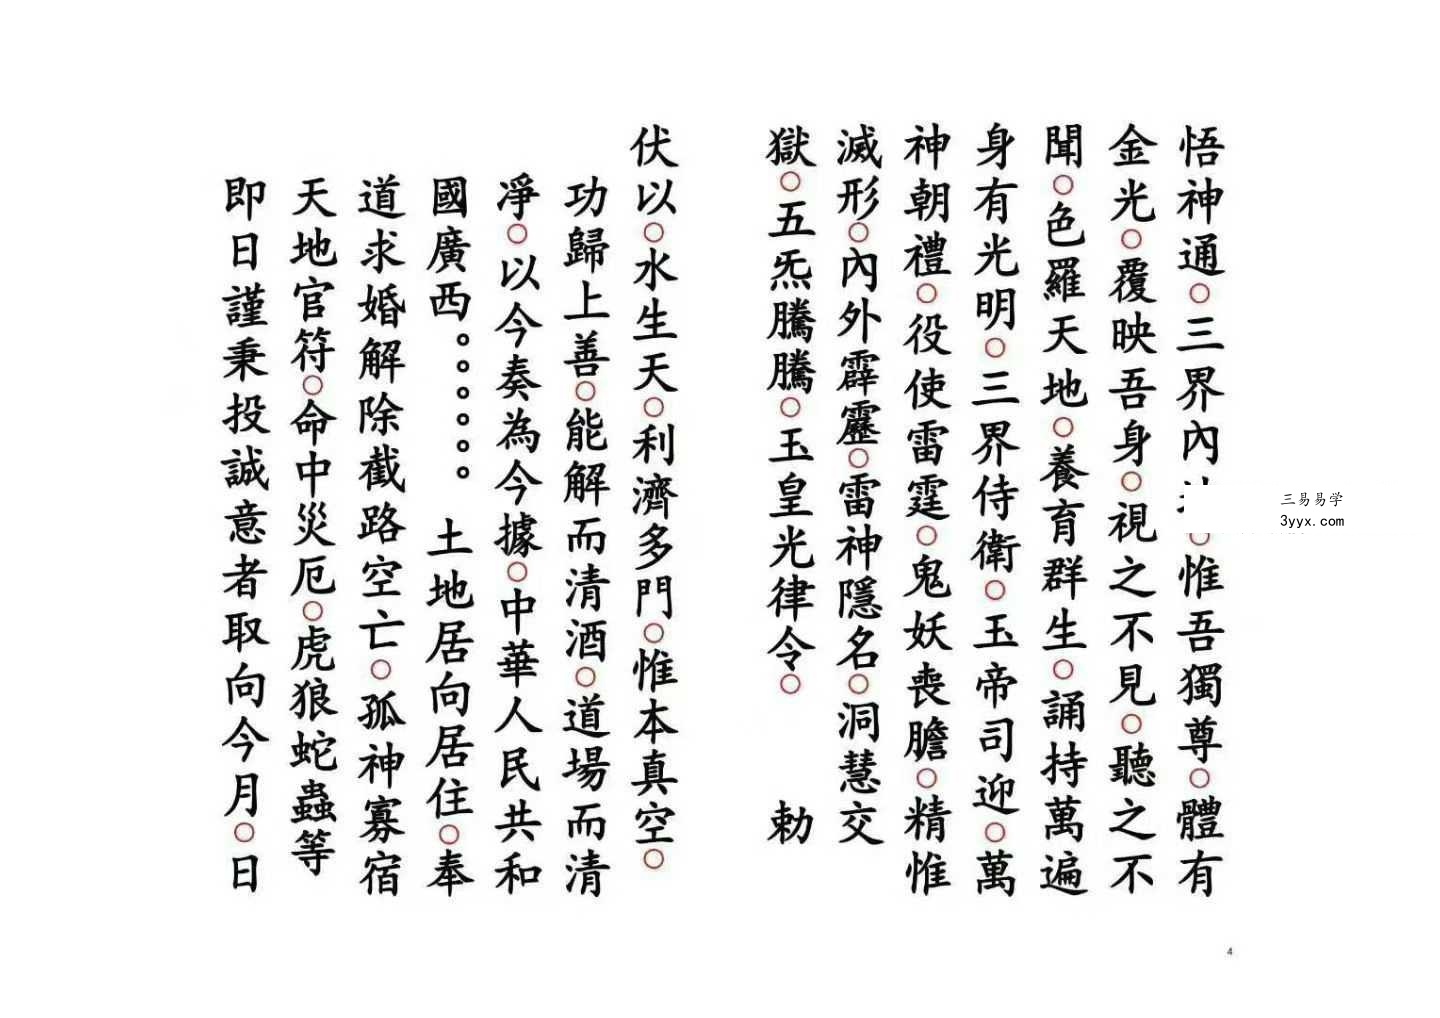 悟神通○三界內○惟吾獨尊○體有
金光○覆映吾身○視之不見○聽之不
聞○色羅天地○養育群生○誦持萬遍
身有光明○三界侍衛○玉帝司迎○萬
神朝禮○役使雷霆○鬼妖喪膽○精惟
滅形○內外霹靂○雷神隱名○洞慧交
獄○五炁騰騰○玉皇光律令○ 勅
伏以○水生天○利濟多門○惟本真空○
功歸上善○能解而清酒○道場而清
淨○以今奏為今據○中華人民共和
國廣西○○○○○○ 土地居向居住○奉
道求婚解除截路空亡○孤神寡宿
天地官符○命中災厄○虎狼蛇蟲等
即日謹秉投誠意者取向今月○日
三易易学
3yyx.com
4